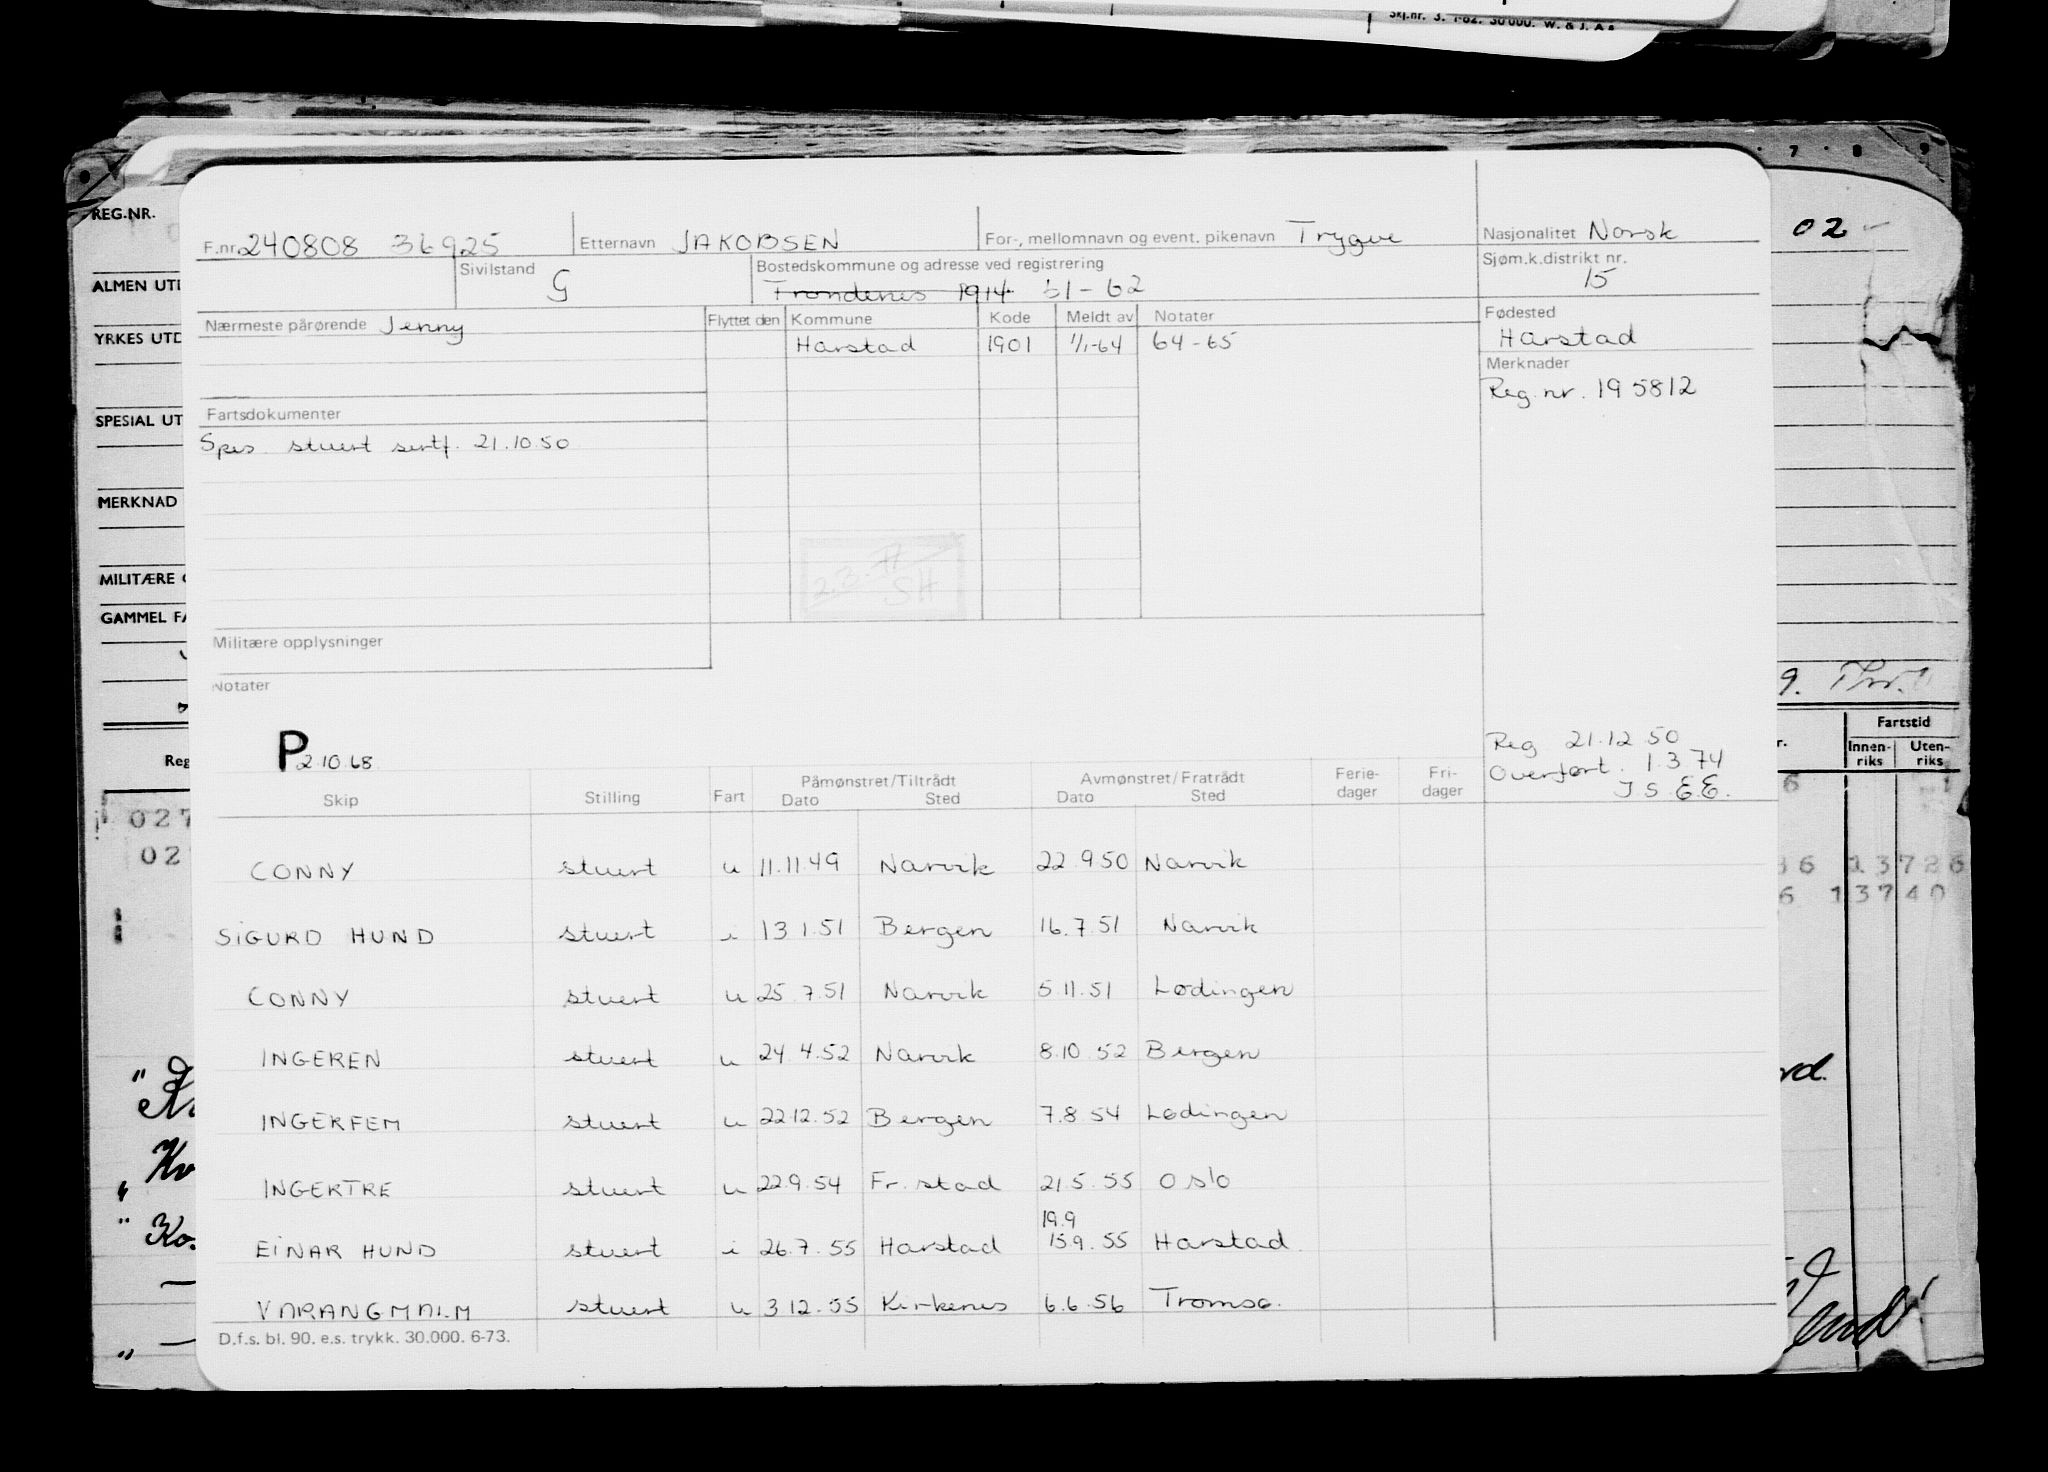 Skj.nr. 3. 7-62. 30 000. W. & J. A s
7 8 9
REG.NR.
02
F.nr. 240808 36925 Etternavn JAKOBSEN For-, mellomnavn og event. pikenavn Trygve Nasjonalitet Norsk
Sivilstand G Bostedskommune og adresse ved registrering Sjøm.k.distrikt nr. 15
Trondenes 1914 61-62
ALMEN UTD
Nærmeste pårørende Jenny Flyttet den Kommune Kode Meldt av Notater Fødested
YRKES UTD
Harstad 1901 1/1-64 64-65 Harstad
Merknader
Reg. nr. 195812
SPESIAL UT
Fartsdokumenter
Spes. stuert sertf. 21.10.50
MERKNAD
MILITÆRE
GAMMEL FA
SH
Militære opplysninger
Notater
9.
P 2.10.68
Reg 21.12.50
Overført 1.3.74
J S E.E.
Fartstid
Innen-riks Uten-riks
Reg
Skip Stilling Fart Påmønstret/Tiltrådt Dato Sted Avmønstret/Fratrådt Dato Sted Ferie-dager Fri-dager
027
02
CONNY stuert u 11.11.49 Narvik 22.9.50 Narvik
13726
13740
SIGURD HUND stuert i 13.1.51 Bergen 16.7.51 Narvik
CONNY stuert u 25.7.51 Narvik 5.11.51 Lødingen
INGEREN stuert u 24.4.52 Narvik 8.10.52 Bergen
INGERFEM stuert u 22.12.52 Bergen 7.8.54 Lødingen
INGERTRE stuert u 22.9.54 Fr.stad 21.5.55 Oslo
19.9
EINAR HUND stuert i 26.7.55 Harstad 15.9.55 Harstad
VARANGMALM stuert u 3.12.55 Kirkenes 6.6.56 Tromsø.
D.f.s. bl. 90. e.s. trykk. 30.000. 6-73.